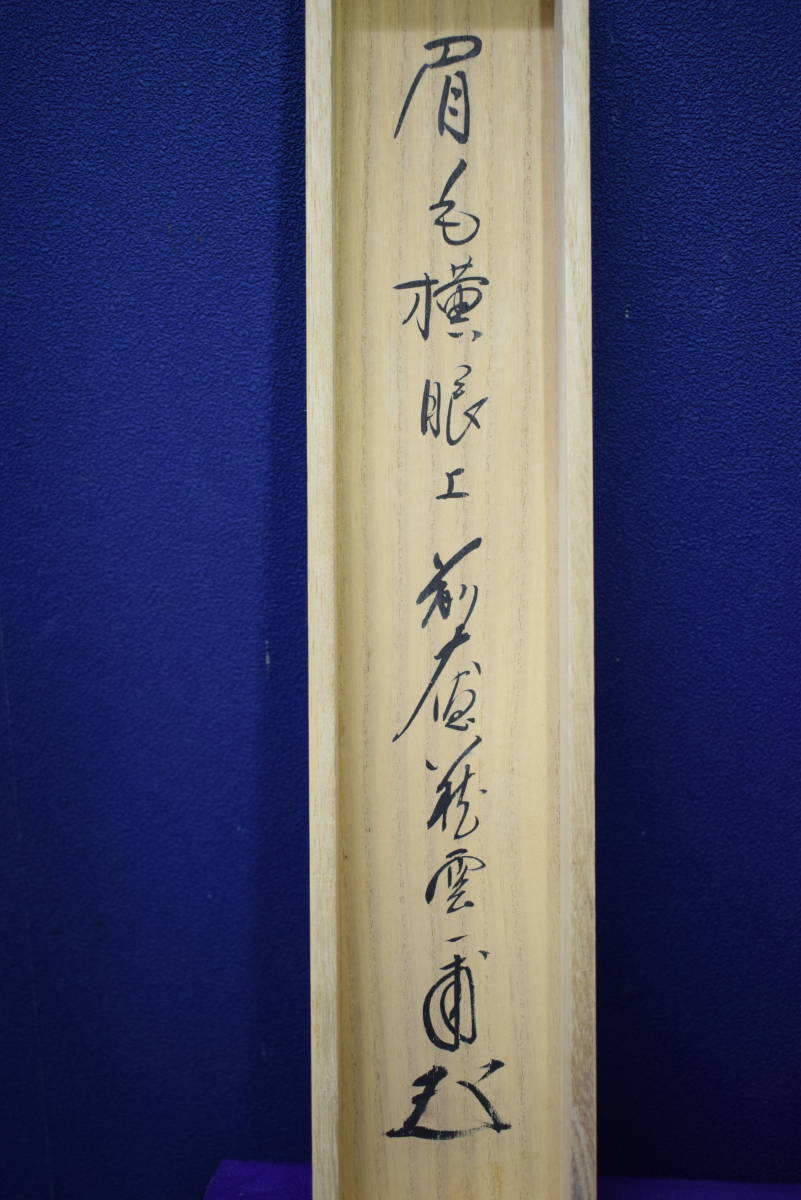 眉毛横眼上 前大徳 藏雲一甫